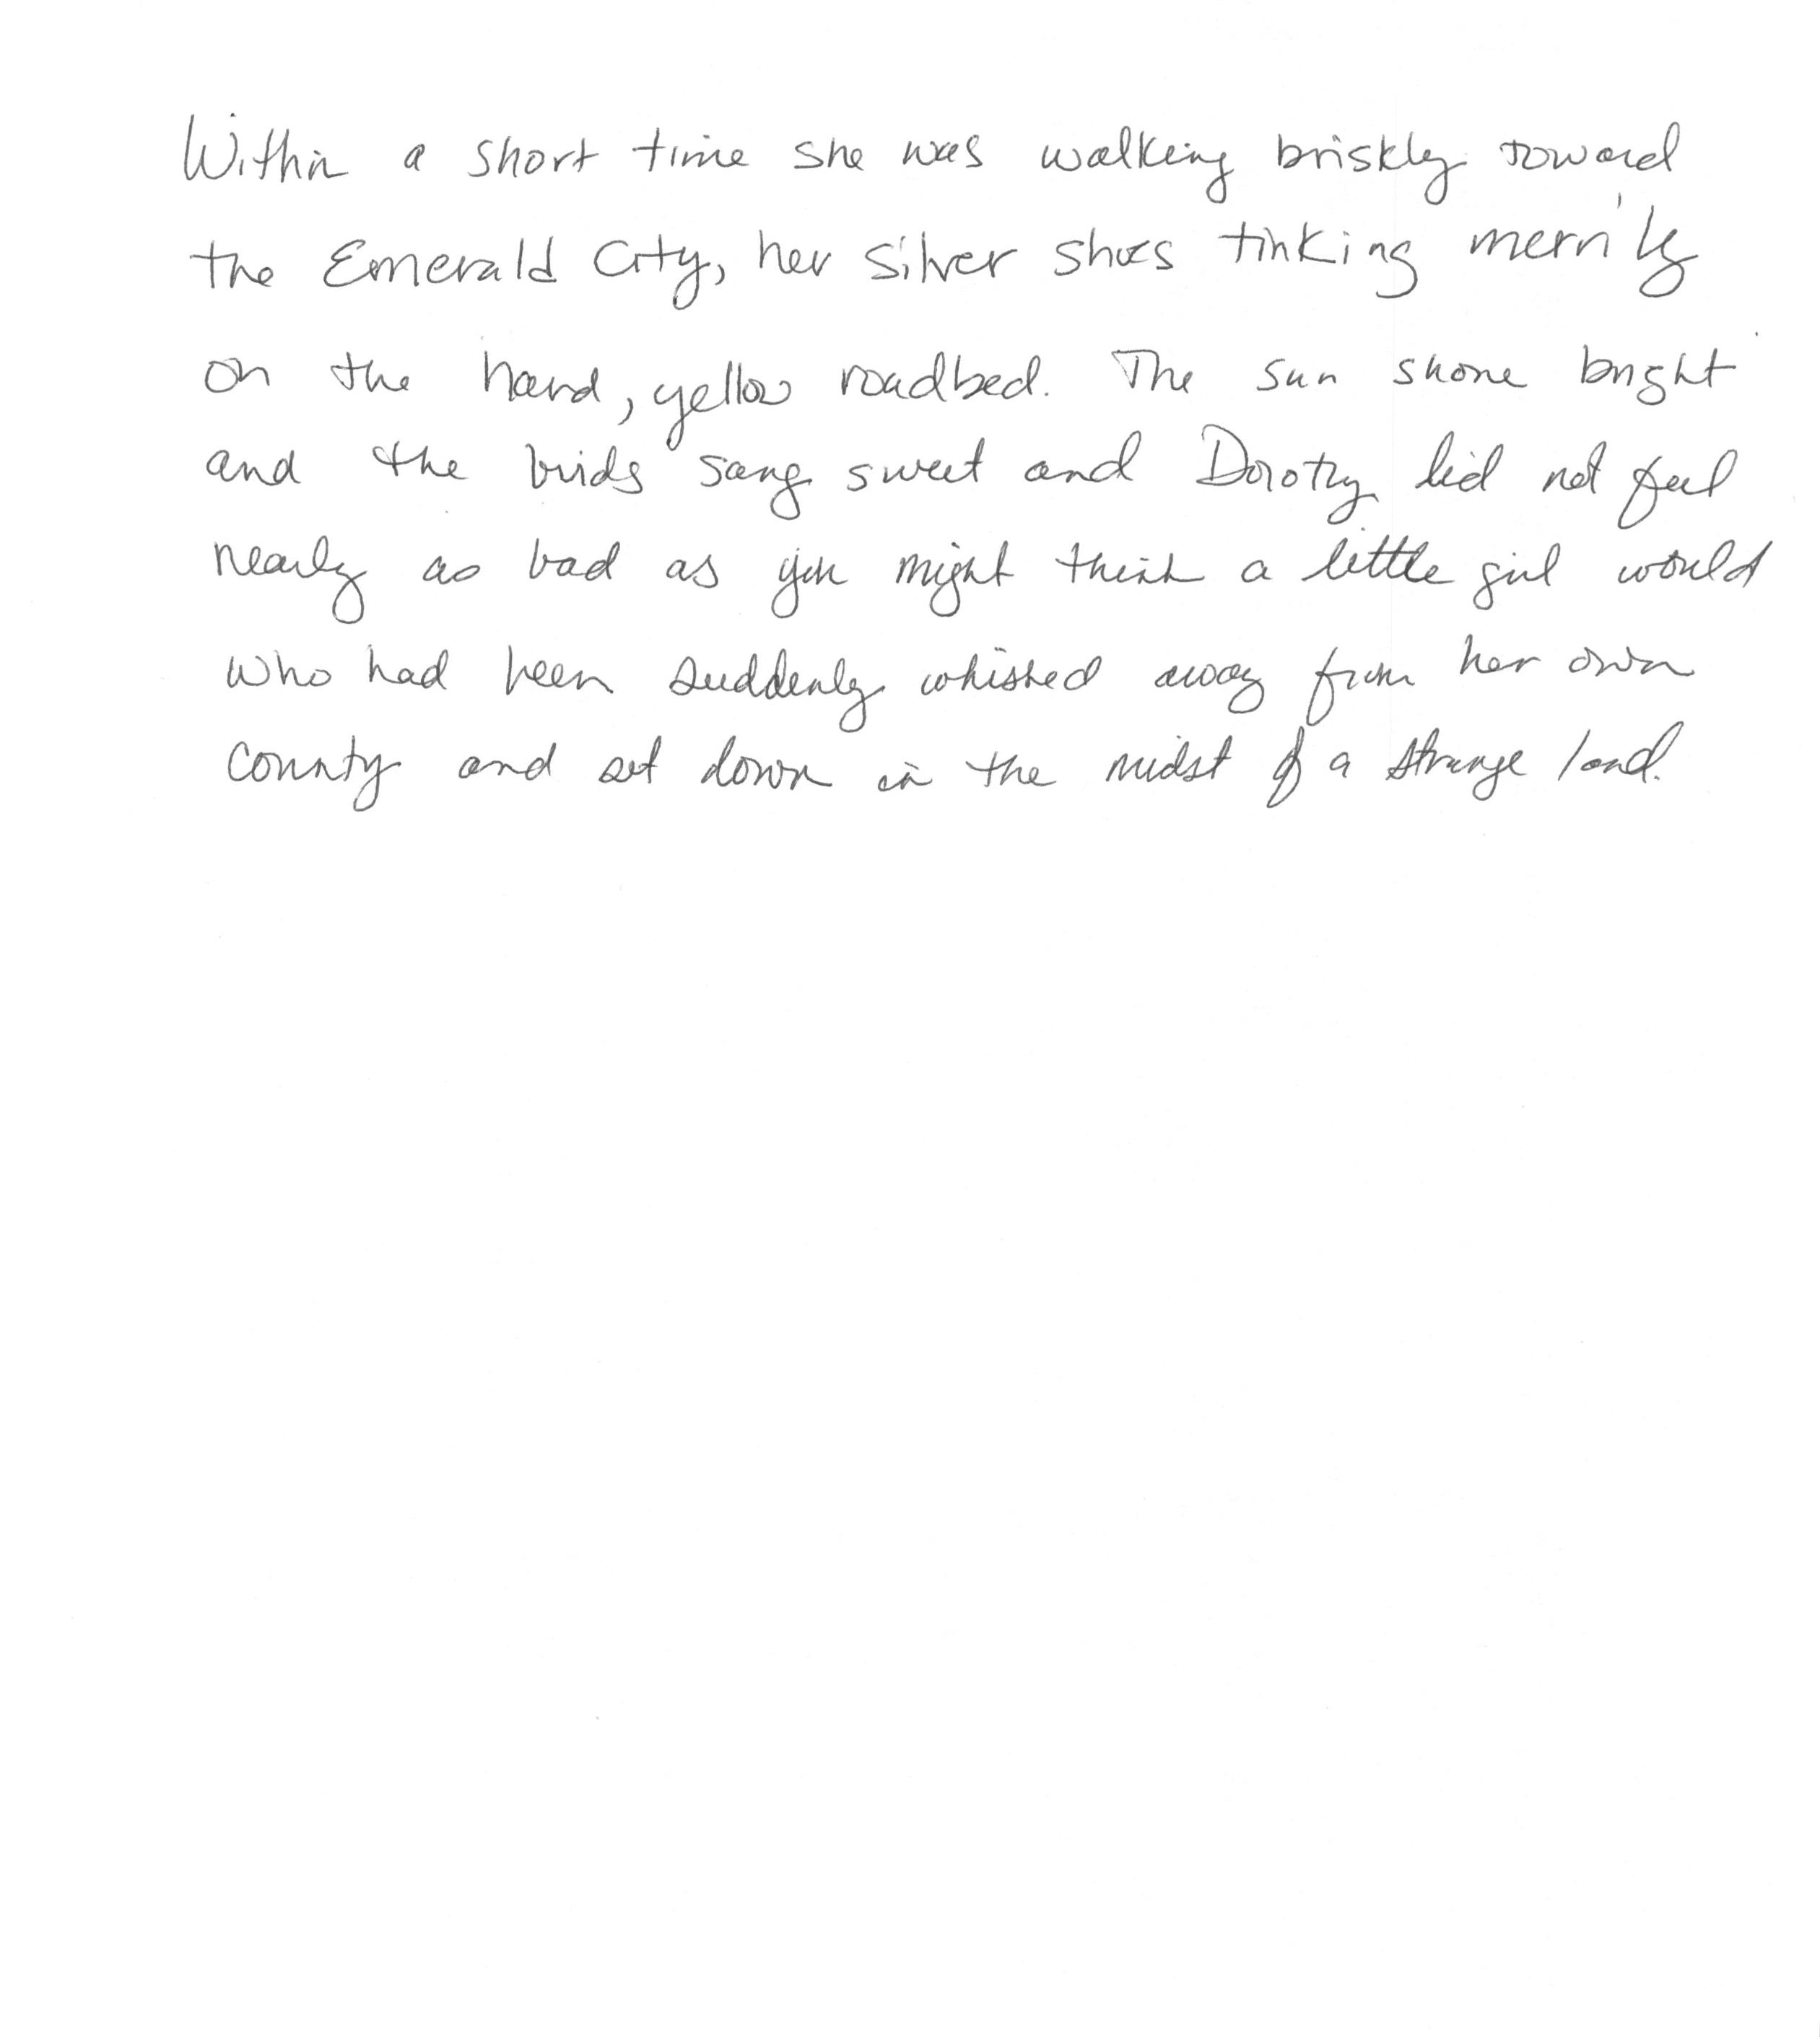 Within a short time she was walking briskly toward
the Emerald City, her silver shoes tinking merrily
on the hard, yellow roadbed. The sun shone bright
and the birds sang sweet and Dorothy did not feel
nearly as bad as you might think a little girl would
who had been suddenly whisked away from her own
county and set down in the midst of a strange land.